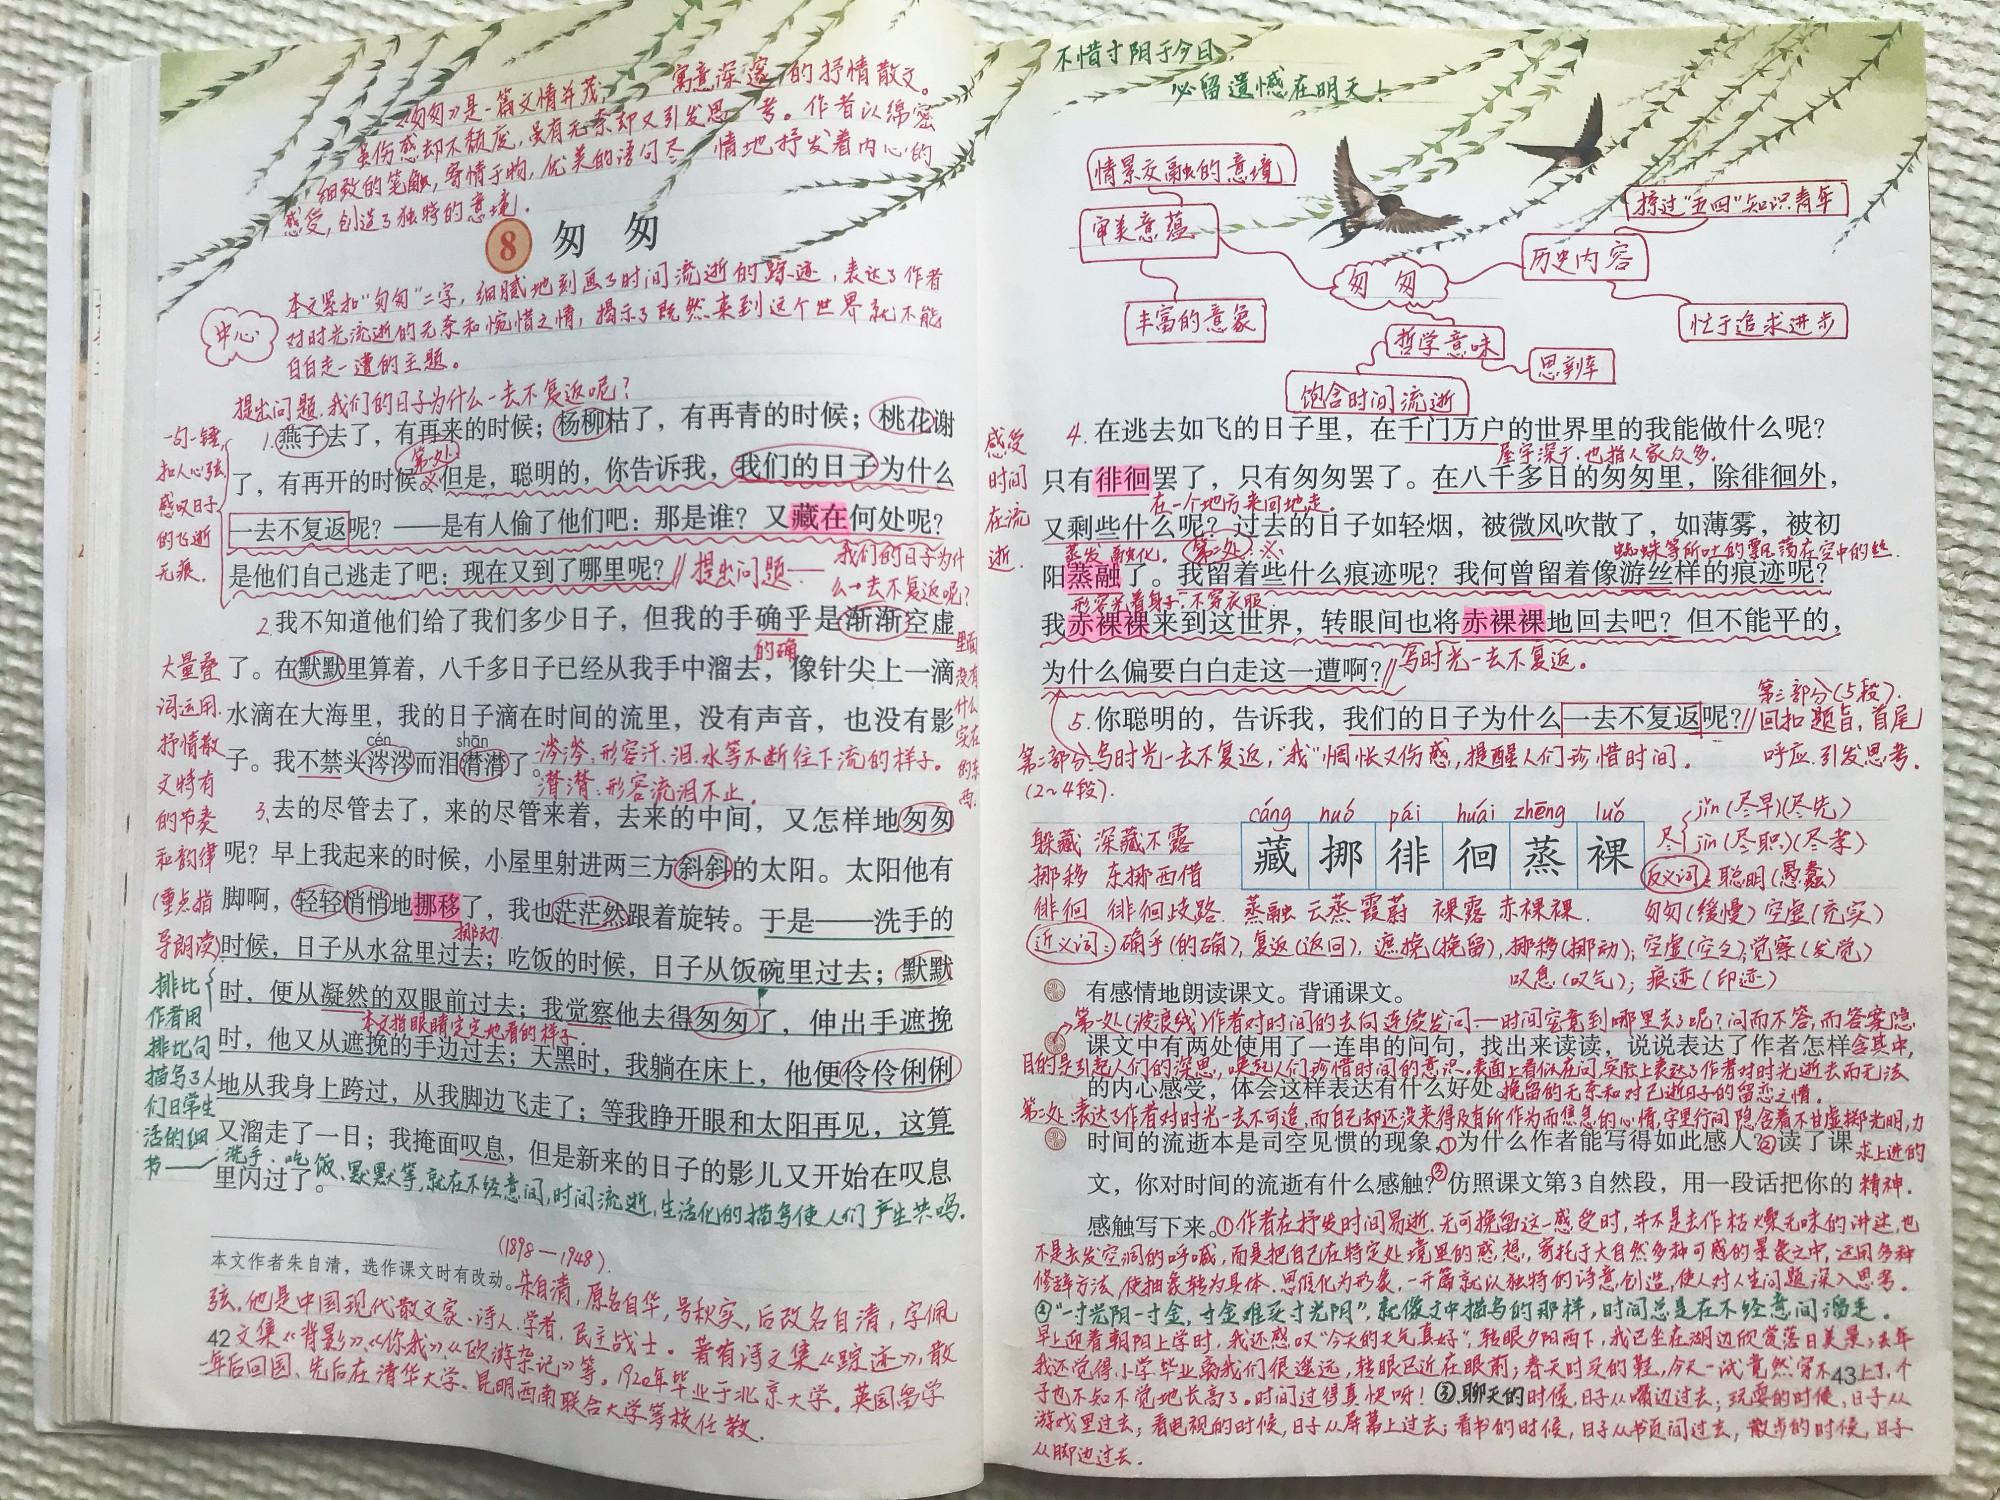 《匆匆》是一篇文情并茂, 寓意深邃的抒情散文。
虽伤感却不颓废,虽有无奈却又引发思考。作者以绵密
细致的笔触,寄情于物,优美的语句尽情地抒发着内心的
感受,创造了独特的意境.
8 匆匆
中心
本文紧扣“匆匆”二字,细腻地刻画了时间流逝的踪迹,表达了作者
对时光流逝的无奈和惋惜之情,揭示了既然来到这个世界就不能
白白走一遭的主题。
提出问题.我们的日子为什么一去不复返呢?
一句一锤,
扣人心弦
感叹日子
的飞逝
无痕.
1.燕子去了,有再来的时候;杨柳枯了,有再青的时候;桃花谢
第一处
了,有再开的时候。但是,聪明的,你告诉我,我们的日子为什么
一去不复返呢?——是有人偷了他们吧:那是谁?又藏在何处呢?
是他们自己逃走了吧:现在又到了哪里呢?//提出问题——我们的日子为什
么一去不复返呢?
2.我不知道他们给了我们多少日子,但我的手确乎是渐渐空虚
的确
里面没有什么实在的东西.
大量叠
词运用.
抒情散
文特有
的节奏
和韵律
(重点指
导朗读)
了。在默默里算着,八千多日子已经从我手中溜去,像针尖上一滴
水滴在大海里,我的日子滴在时间的流里,没有声音,也没有影
cén shān
子。我不禁头涔涔而泪潸潸了。
涔涔:形容汗、泪、水等不断往下流的样子。
潸潸:形容流泪不止.
3.去的尽管去了,来的尽管来着,去来的中间,又怎样地匆匆
呢?早上我起来的时候,小屋里射进两三方斜斜的太阳。太阳他有
脚啊,轻轻悄悄地挪移了,我也茫茫然跟着旋转。于是——洗手的
挪动
时候,日子从水盆里过去;吃饭的时候,日子从饭碗里过去;默默
时,便从凝然的双眼前过去;我觉察他去得匆匆了,伸出手遮挽
本文指眼睛定定地看的样子.
时,他又从遮挽的手边过去;天黑时,我躺在床上,他便伶伶俐俐
地从我身上跨过,从我脚边飞走了;等我睁开眼和太阳再见,这算
又溜走了一日;我掩面叹息,但是新来的日子的影儿又开始在叹息
里闪过了。
排比
作者用
排比句
描写了人
们日常生
活的细
节——洗手、吃饭、默默等,就在不经意间,时间流逝,生活化的描写使人们产生共鸣.
(1898—1948).
本文作者朱自清,选作课文时有改动。朱自清,原名自华,号秋实,后改名自清,字佩
弦,他是中国现代散文家、诗人、学者、民主战士。著有诗文集《踪迹》,散
42
文集《背影》、《你我》、《欧游杂记》等。1920年毕业于北京大学。英国留学
一年后回国、先后在清华大学、昆明西南联合大学等校任教.
不惜寸阴于今日,
必留遗憾在明天!
情景交融的意境
审美意蕴
丰富的意象
匆匆
掠过“五四”知识青年
历史内容
忙于追求进步
哲学意味
思辨率
饱含时间流逝
感受
时间
在流
逝.
4.在逃去如飞的日子里,在千门万户的世界里的我能做什么呢?
屋宇深广.也指人家众多.
只有徘徊罢了,只有匆匆罢了。在八千多日的匆匆里,除徘徊外,
在一个地方来回地走。
又剩些什么呢?过去的日子如轻烟,被微风吹散了,如薄雾,被初
蒸发 融化. 第二处 蜘蛛等所吐的飘荡在空中的丝.
阳蒸融了。我留着些什么痕迹呢?我何曾留着像游丝样的痕迹呢?
形容光着身子.不穿衣服
我赤裸裸来到这世界,转眼间也将赤裸裸地回去吧?但不能平的,
为什么偏要白白走这一遭啊?//写时光一去不复返。
5.你聪明的,告诉我,我们的日子为什么一去不复返呢?//
第三部分(5段).
回扣题旨,首尾
呼应.引发思考.
第二部分写时光一去不复返,“我”惆怅又伤感,提醒人们珍惜时间.
(2~4段).
cáng nuó pái huái zhēng luǒ
藏 挪 徘 徊 蒸 裸
尽 jǐn (尽早)(尽先)
jìn (尽职)(尽孝)
躲藏 深藏不露
挪移 东挪西借
反义词:聪明(愚蠢)
徘徊 徘徊歧路. 蒸融 云蒸霞蔚 裸露 赤裸裸. 匆匆(缓慢) 空虚(充实)
近义词:确乎(的确),复返(返回),遮挽(挽留),挪移(挪动);空虚(空乏);觉察(发觉)
叹息(叹气);痕迹(印迹)
有感情地朗读课文。背诵课文。
第一处(波浪线)作者对时间的去向连续发问——时间究竟到哪里去了呢?问而不答,而答案隐
课文中有两处使用了一连串的问句,找出来读读,说说表达了作者怎样
含其中,
目的是引起人们的深思,唤起人们珍惜时间的意识.表面上看似在问,实际上表达了作者对时光逝去而无法
的内心感受,体会这样表达有什么好处。
挽留的无奈和对已逝日子的留恋之情.
第二处.表达了作者对时光一去不可追,而自己却还没来得及有所作为而焦急的心情,字里行间隐含着不甘虚掷光明,力
时间的流逝本是司空见惯的现象,①为什么作者能写得如此感人?②读了课
求上进的
文,你对时间的流逝有什么感触?③仿照课文第3自然段,用一段话把你的
精神.
感触写下来。①作者在抒发时间易逝.无可挽留这一感受时,并不是去作枯燥无味的讲述,也
不是去发空洞的呼喊,而是把自己在特定处境里的感想,寄托于大自然多种可感的景象之中,运用多种
修辞方法,使抽象转为具体.思维化为形象,一开篇就以独特的诗意创造,使人对人生问题深入思考.
②“一寸光阴一寸金,寸金难买寸光阴”,就像文中描写的那样,时间总是在不经意间溜走.
早上迎着朝阳上学时,我还感叹“今天的天气真好”,转眼夕阳西下,我已坐在湖边欣赏落日美景;去年
我还觉得小学毕业离我们很遥远,转眼已近在眼前;春天时买的鞋,今天一试竟然穿不上了.个
43
子也不知不觉地长高了.时间过得真快呀!③聊天的时候,日子从嘴边过去;玩耍的时候,日子从
游戏里过去;看电视的时候,日子从屏幕上过去;看书的时候,日子从书页间过去,散步的时候,日子
从脚边过去.